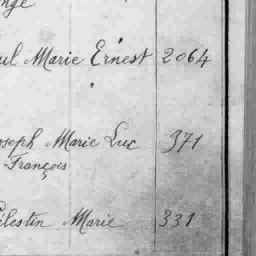 ul Marie Ernest 2064
oseph Marie Luc 371
François
élestin Marie 331